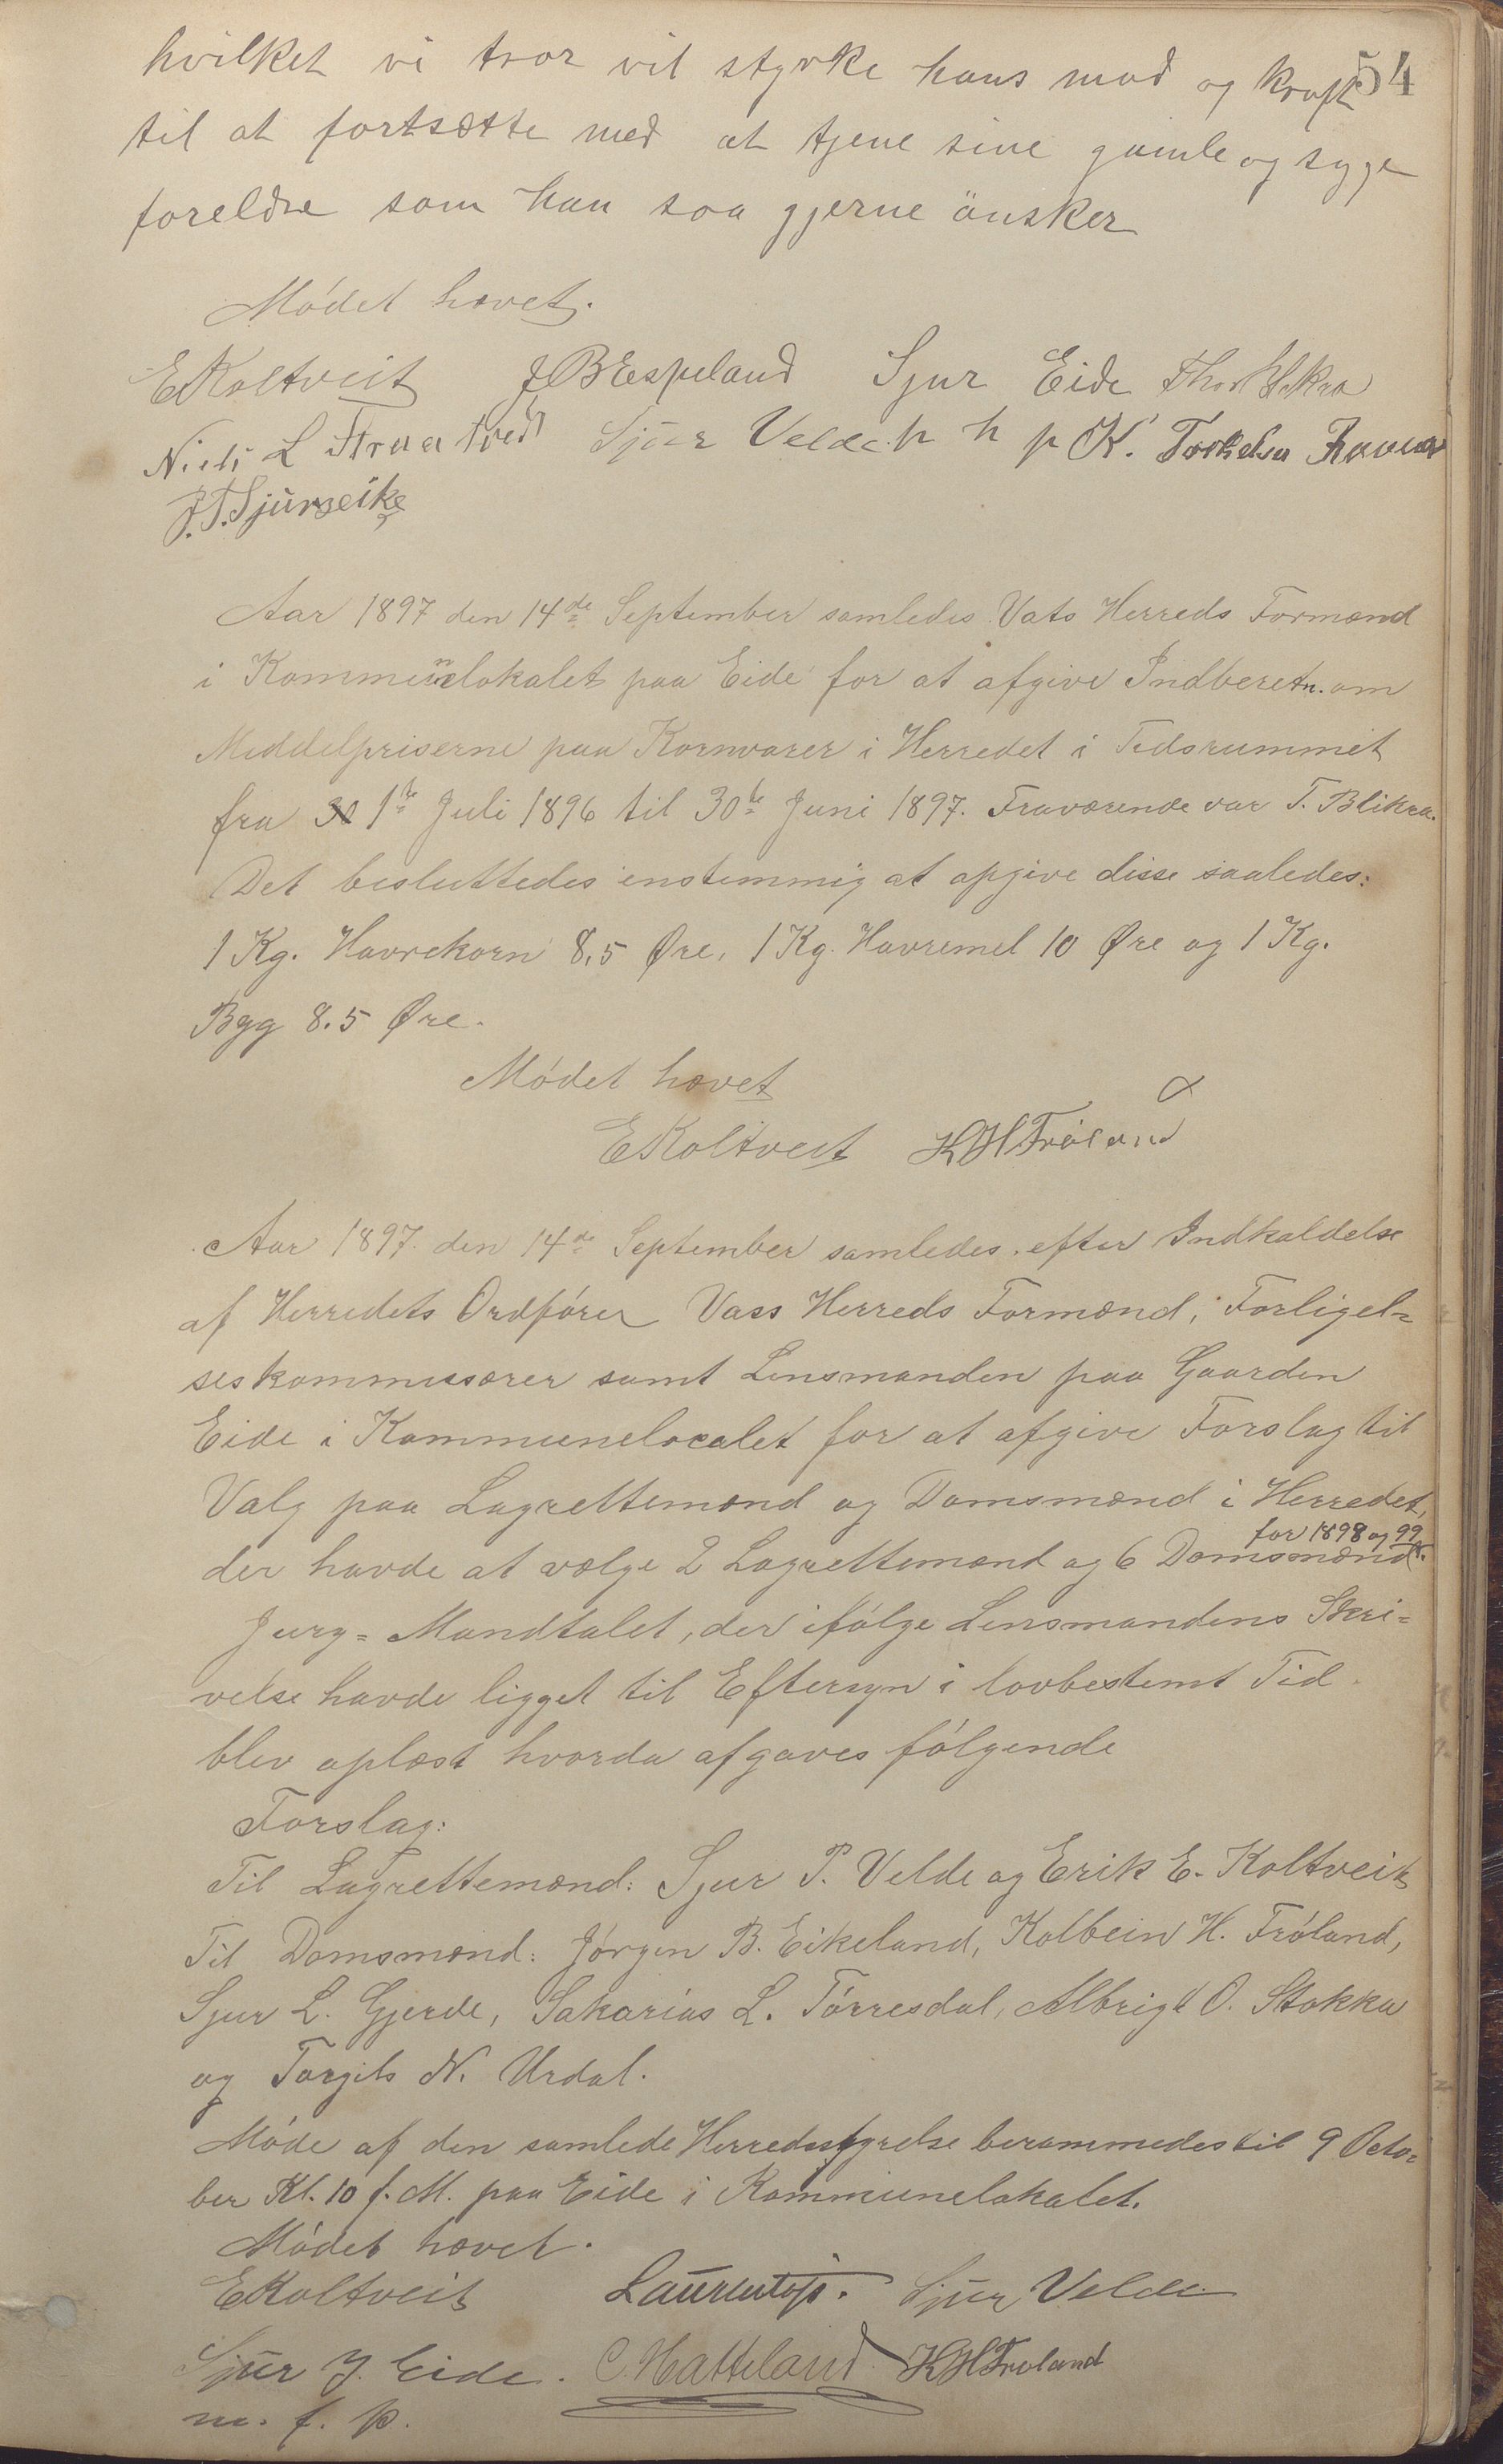 54
hvilket vi tror vil styrke hans mod og kraft
til at fortsætte med at tjene sine gamle og syge
foreldre som han saa gjerne önsker
Mødet hævet.
EKoltveit JBEspeland Sjur Eide
Niels L Sjur Velde. p h p K. Torkelsen
J.T.Sjurseike
Aar 1897 den 14de September samledes Vats Herreds Formænd
i Kommunelokalet paa Eide for at afgive Indberetn. om
Middelpriserne paa Kornvarer i Herredet i Tidsrummet
fra 1te Juli 1896 til 30te Juni 1897. Fraværende var T. Blikra.
Det besluttedes enstemmig at opgive disse saaledes:
1 Kg. Havrekorn 8,5 Øre, 1 Kg. Havremel 10 Øre og 1 Kg.
Byg 8.5 Øre.
Mødet hævet
EKoltveit KHFröland
Aar 1897 den 14de September samledes efter Indkaldelse
af Herredets Ordfører Vass Herreds Formænd, Forligel=
seskommissærer samt Lensmanden paa Gaarden
Eide i Kommunelocalet for at afgive Forslag til
Valg paa Lagrettemænd og Domsmænd i Herredet,
for 1898 og 99
der havde at vælge 2 Lagrettemænd og 6 Domsmænd.
Jury=Mandtalet, der ifølge Lensmandens Skri=
velse havde ligget til Eftersyn i lovbestemt Tid
blev oplæst hvorda afgaves følgende
Forslag:
Til Lagrettemænd: Sjur P. Velde og Erik E. Koltveit
Til Domsmænd: Jörgen B. Eikeland, Kolbein H. Fröland,
Sjur L. Gjerde, Sakarias L. Törresdal, Albrigt O. Stokka
og Torgils N. Urdal.
Møde af den samlede Herredsstyrelse berammedes til 9 Octo=
ber Kl. 10 f. M. paa Eide i Kommunelokalet.
Mødet hævet.
EKoltveit Sjur Velde
Sjur J. Eide. C. Hatteland KHFroland
m. f. p.